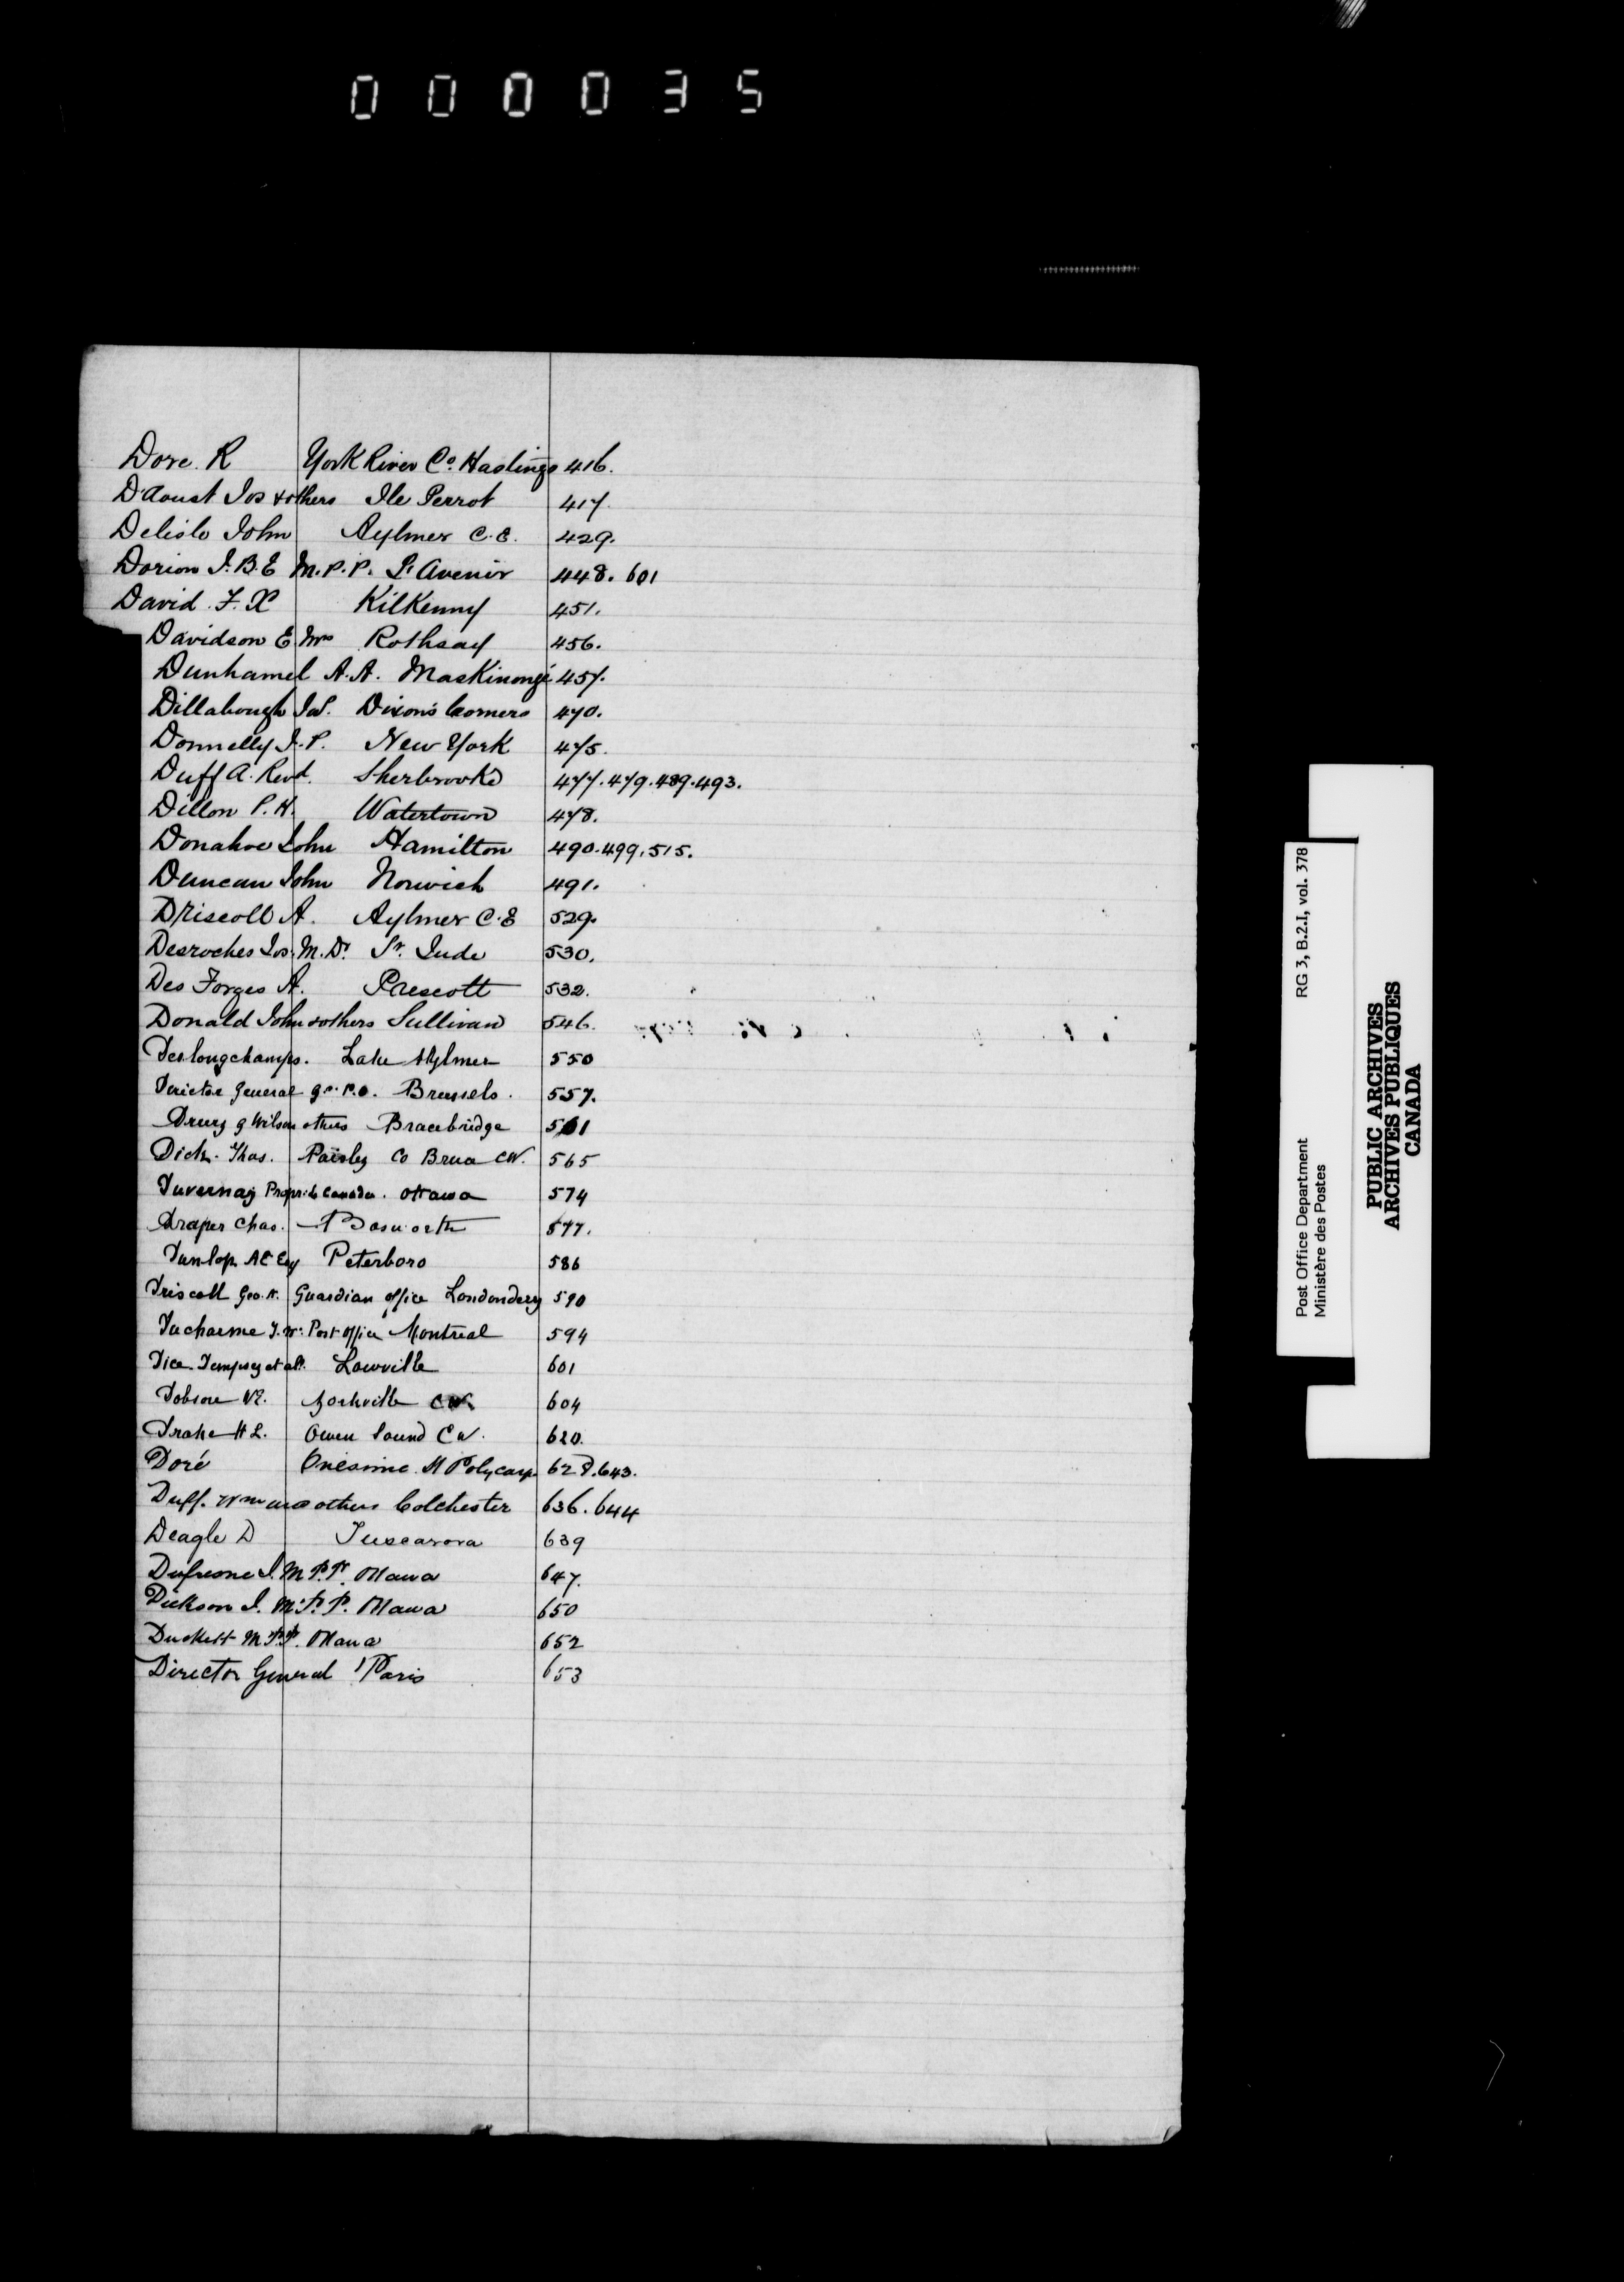 000035
Dore. R York River Co. Hastings 416.
D'Aoust Jos & others Ile Perrot 417.
Delisle John Aylmer C.E. 429.
Dorion J.B.E M.P.P. L'Avenir 448. 601
David F. X Kilkenny 451.
Davidson E. Mrs Rothsay 456.
Dunhamel A.A. Maskinongé 457.
Dillabough Jas. Dixon's Corners 470.
Donnelly J.P. New York 475.
Duff A. Revd. Sherbrooke 477. 479. 489. 493.
Dillon P.H. Watertown 478.
Donahoe John Hamilton 490. 499. 515.
Duncan John Norwich 491.
Driscoll A. Aylmer C.E 529.
Desroches Jos. M.D. St. Jude 530.
Des Forges A. Prescott 532.
Donald John & others Sullivan 546.
Deslongchamps. Lake Aylmer 550
Director General G.P.O. Brussels. 557.
Drury g Wilson others Bracebridge 561
Dick. Thos. Paisley Co Brua CW. 565
Duvernay Propr. Le Canada. Ottawa 574
Draper Chas. Bosworth 577.
Dunlop AC Esq Peterboro 586
Driscoll Geo. A. Guardian office Londonderry 590
Ducharme Post Office Montreal 594
Dice. Dempsey et al. Lowville 601
Dobson Yorkville CW. 604
Drake H L. Owen Sound CW. 620.
Doré Onésime St Polycarp 628. 643.
Duff. Wm and others Colchester 636. 644
Deagle D Tuscarora 639
Dufresne J. M.P.P. Ottawa 647.
Dickson J. M.P.P. Ottawa 650
Duckett M.P.P. Ottawa 652
Director General Paris 653
Post Office Department RG 3, B.2.I, vol. 378
Ministère des Postes
PUBLIC ARCHIVES
ARCHIVES PUBLIQUES
CANADA